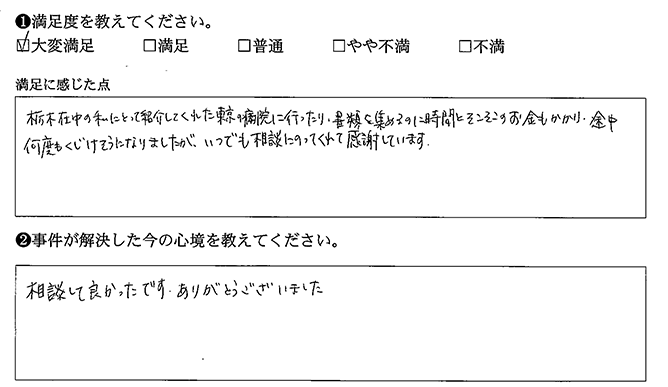 ❶満足度を教えてください。
☑大変満足 □満足 □普通 □やや不満 □不満
満足に感じた点
栃木在中の私にとって紹介してくれた東京の病院に行ったり、書類を集めるのに時間とそこそこのお金もかかり、途中
何度もくじけそうになりましたが、いつでも相談にのってくれて感謝しています.
❷事件が解決した今の心境を教えてください。
相談して良かったです.ありがとうございました